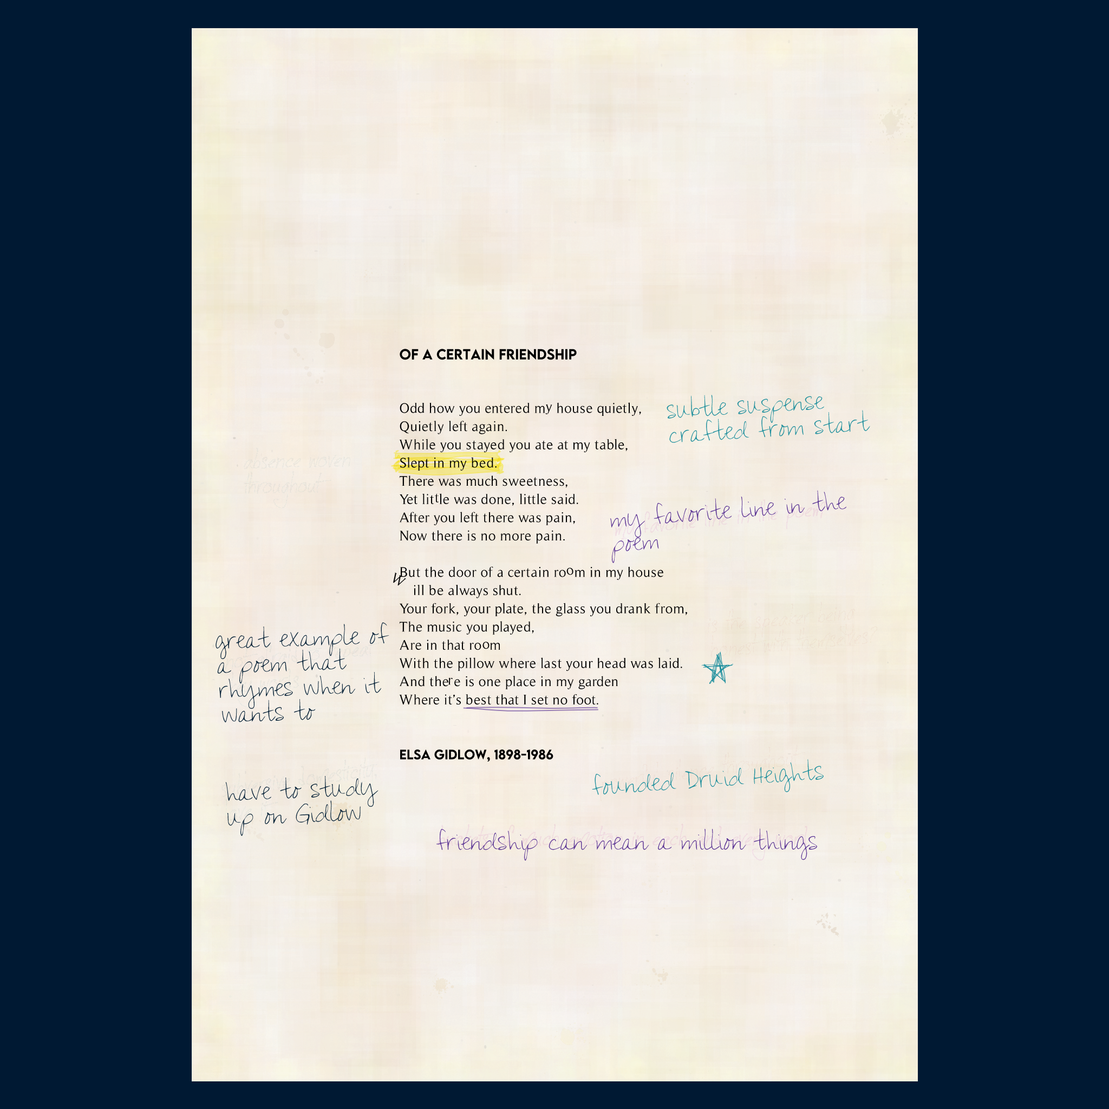 OF A CERTAIN FRIENDSHIP
Odd how you entered my house quietly,
Quietly left again.
While you stayed you ate at my table,
Slept in my bed.
There was much sweetness,
Yet little was done, little said.
After you left there was pain,
Now there is no more pain.
But the door of a certain room in my house
Will be always shut.
Your fork, your plate, the glass you drank from,
The music you played,
Are in that room
With the pillow where last your head was laid.
And there is one place in my garden
Where it's best that I set no foot.
ELSA GIDLOW, 1898-1986
subtle suspense
crafted from start
my favorite line in the
poem
great example of
a poem that
rhymes when it
wants to
have to study
up on Gidlow
founded Druid Heights
friendship can mean a million things